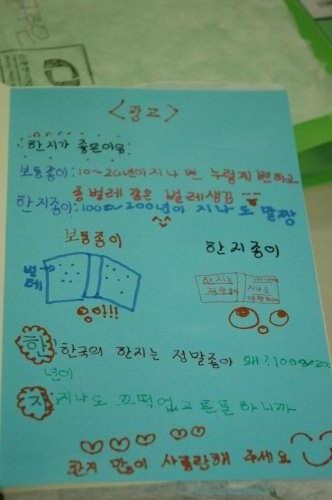 <광고>
한지가 좋은이유
보통종이:10~20년이 지나면 누렇게 변하고
좀벌레 같은 벌레생김
한지종이:100~200년이 지나도 말짱
보통종이
한지종이
벌레
한지는
지나도
웅이!!!
한:한국의 한지는 정말좋아 왜?100~20
년이
지:지나도 끄떡없고 튼튼하니까
한지 많이 사랑해 주세요